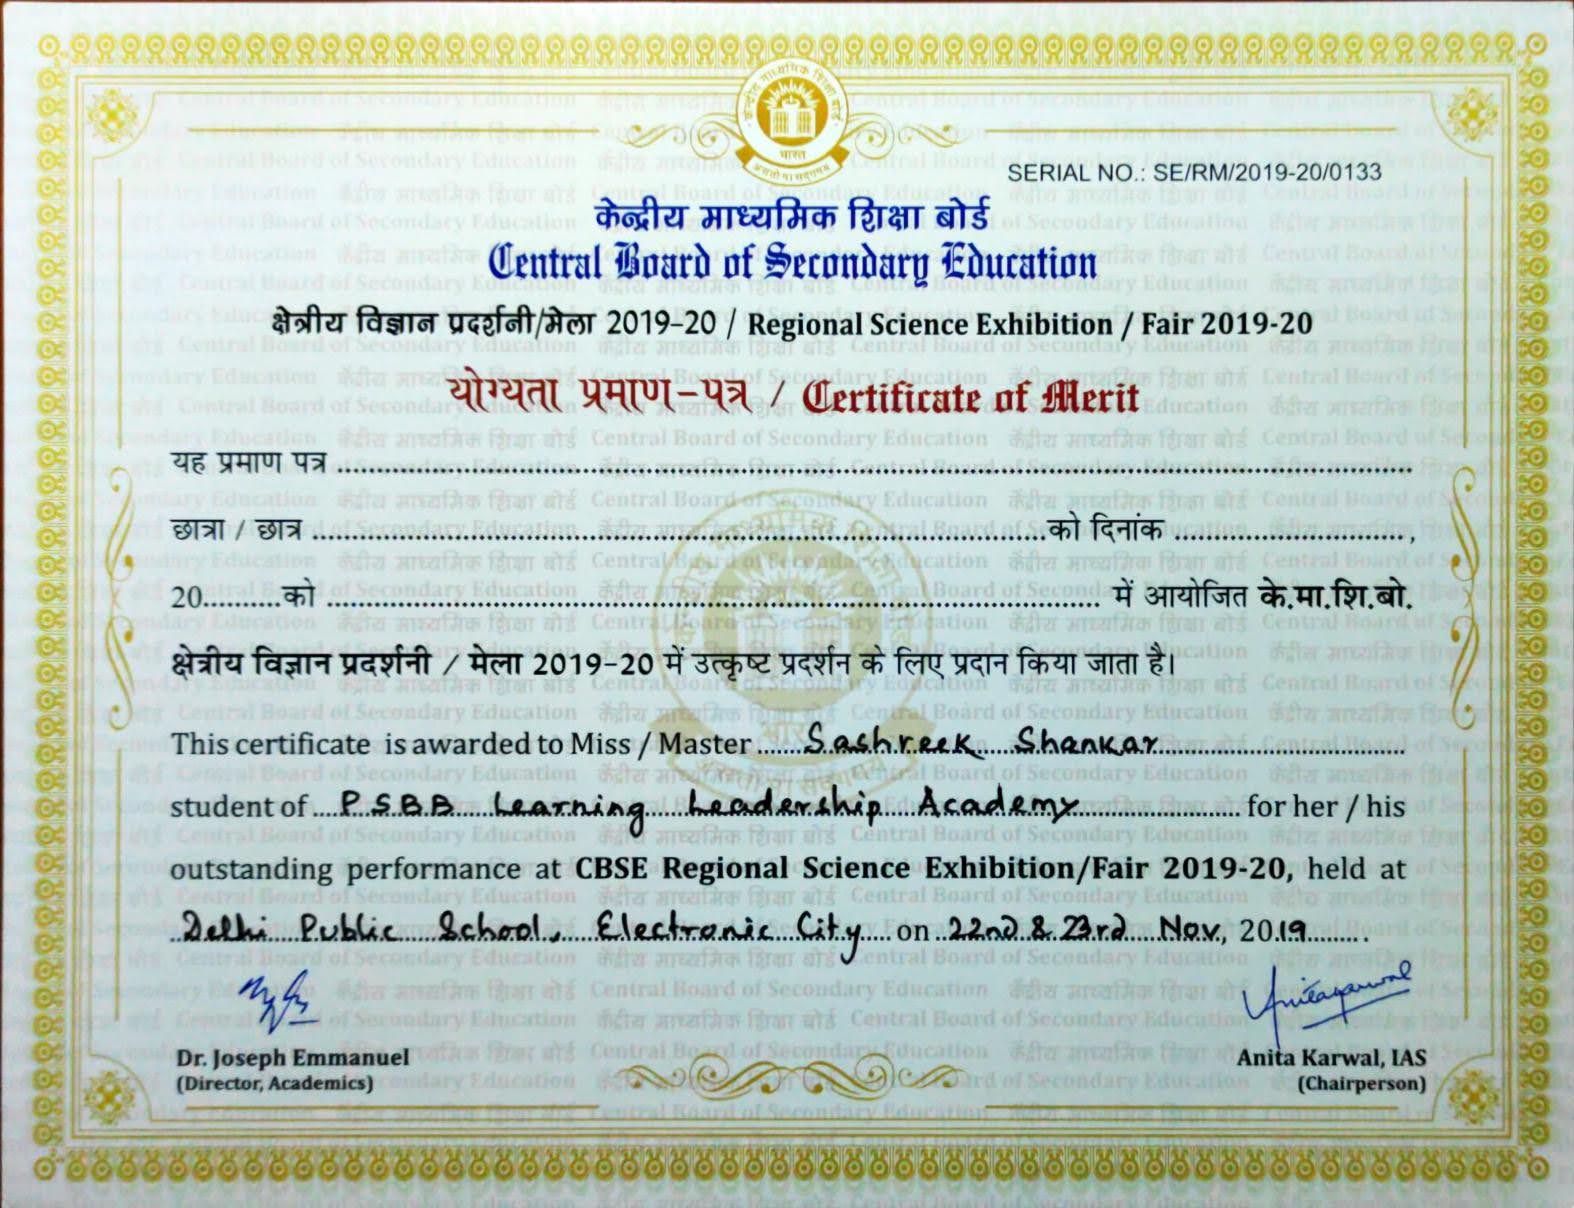 केन्द्रीय माध्यमिक शिक्षा बोर्ड
भारत
असतो मा सद्गमय
SERIAL NO.: SE/RM/2019-20/0133
केन्द्रीय माध्यमिक शिक्षा बोर्ड
Central Board of Secondary Education
क्षेत्रीय विज्ञान प्रदर्शनी/मेला 2019-20 / Regional Science Exhibition / Fair 2019-20
योग्यता प्रमाण-पत्र / Certificate of Merit
यह प्रमाण पत्र
छात्रा / छात्र को दिनांक ,
20 को में आयोजित के.मा.शि.बो.
क्षेत्रीय विज्ञान प्रदर्शनी / मेला 2019-20 में उत्कृष्ट प्रदर्शन के लिए प्रदान किया जाता है।
This certificate is awarded to Miss / Master Sashreek Shankar
student of P.S.B.B. Learning Leadership Academy for her / his
outstanding performance at CBSE Regional Science Exhibition/Fair 2019-20, held at
Delhi Public School, Electronic City on 22nd & 23rd Nov, 2019.
Dr. Joseph Emmanuel
(Director, Academics)
Anita Karwal, IAS
(Chairperson)